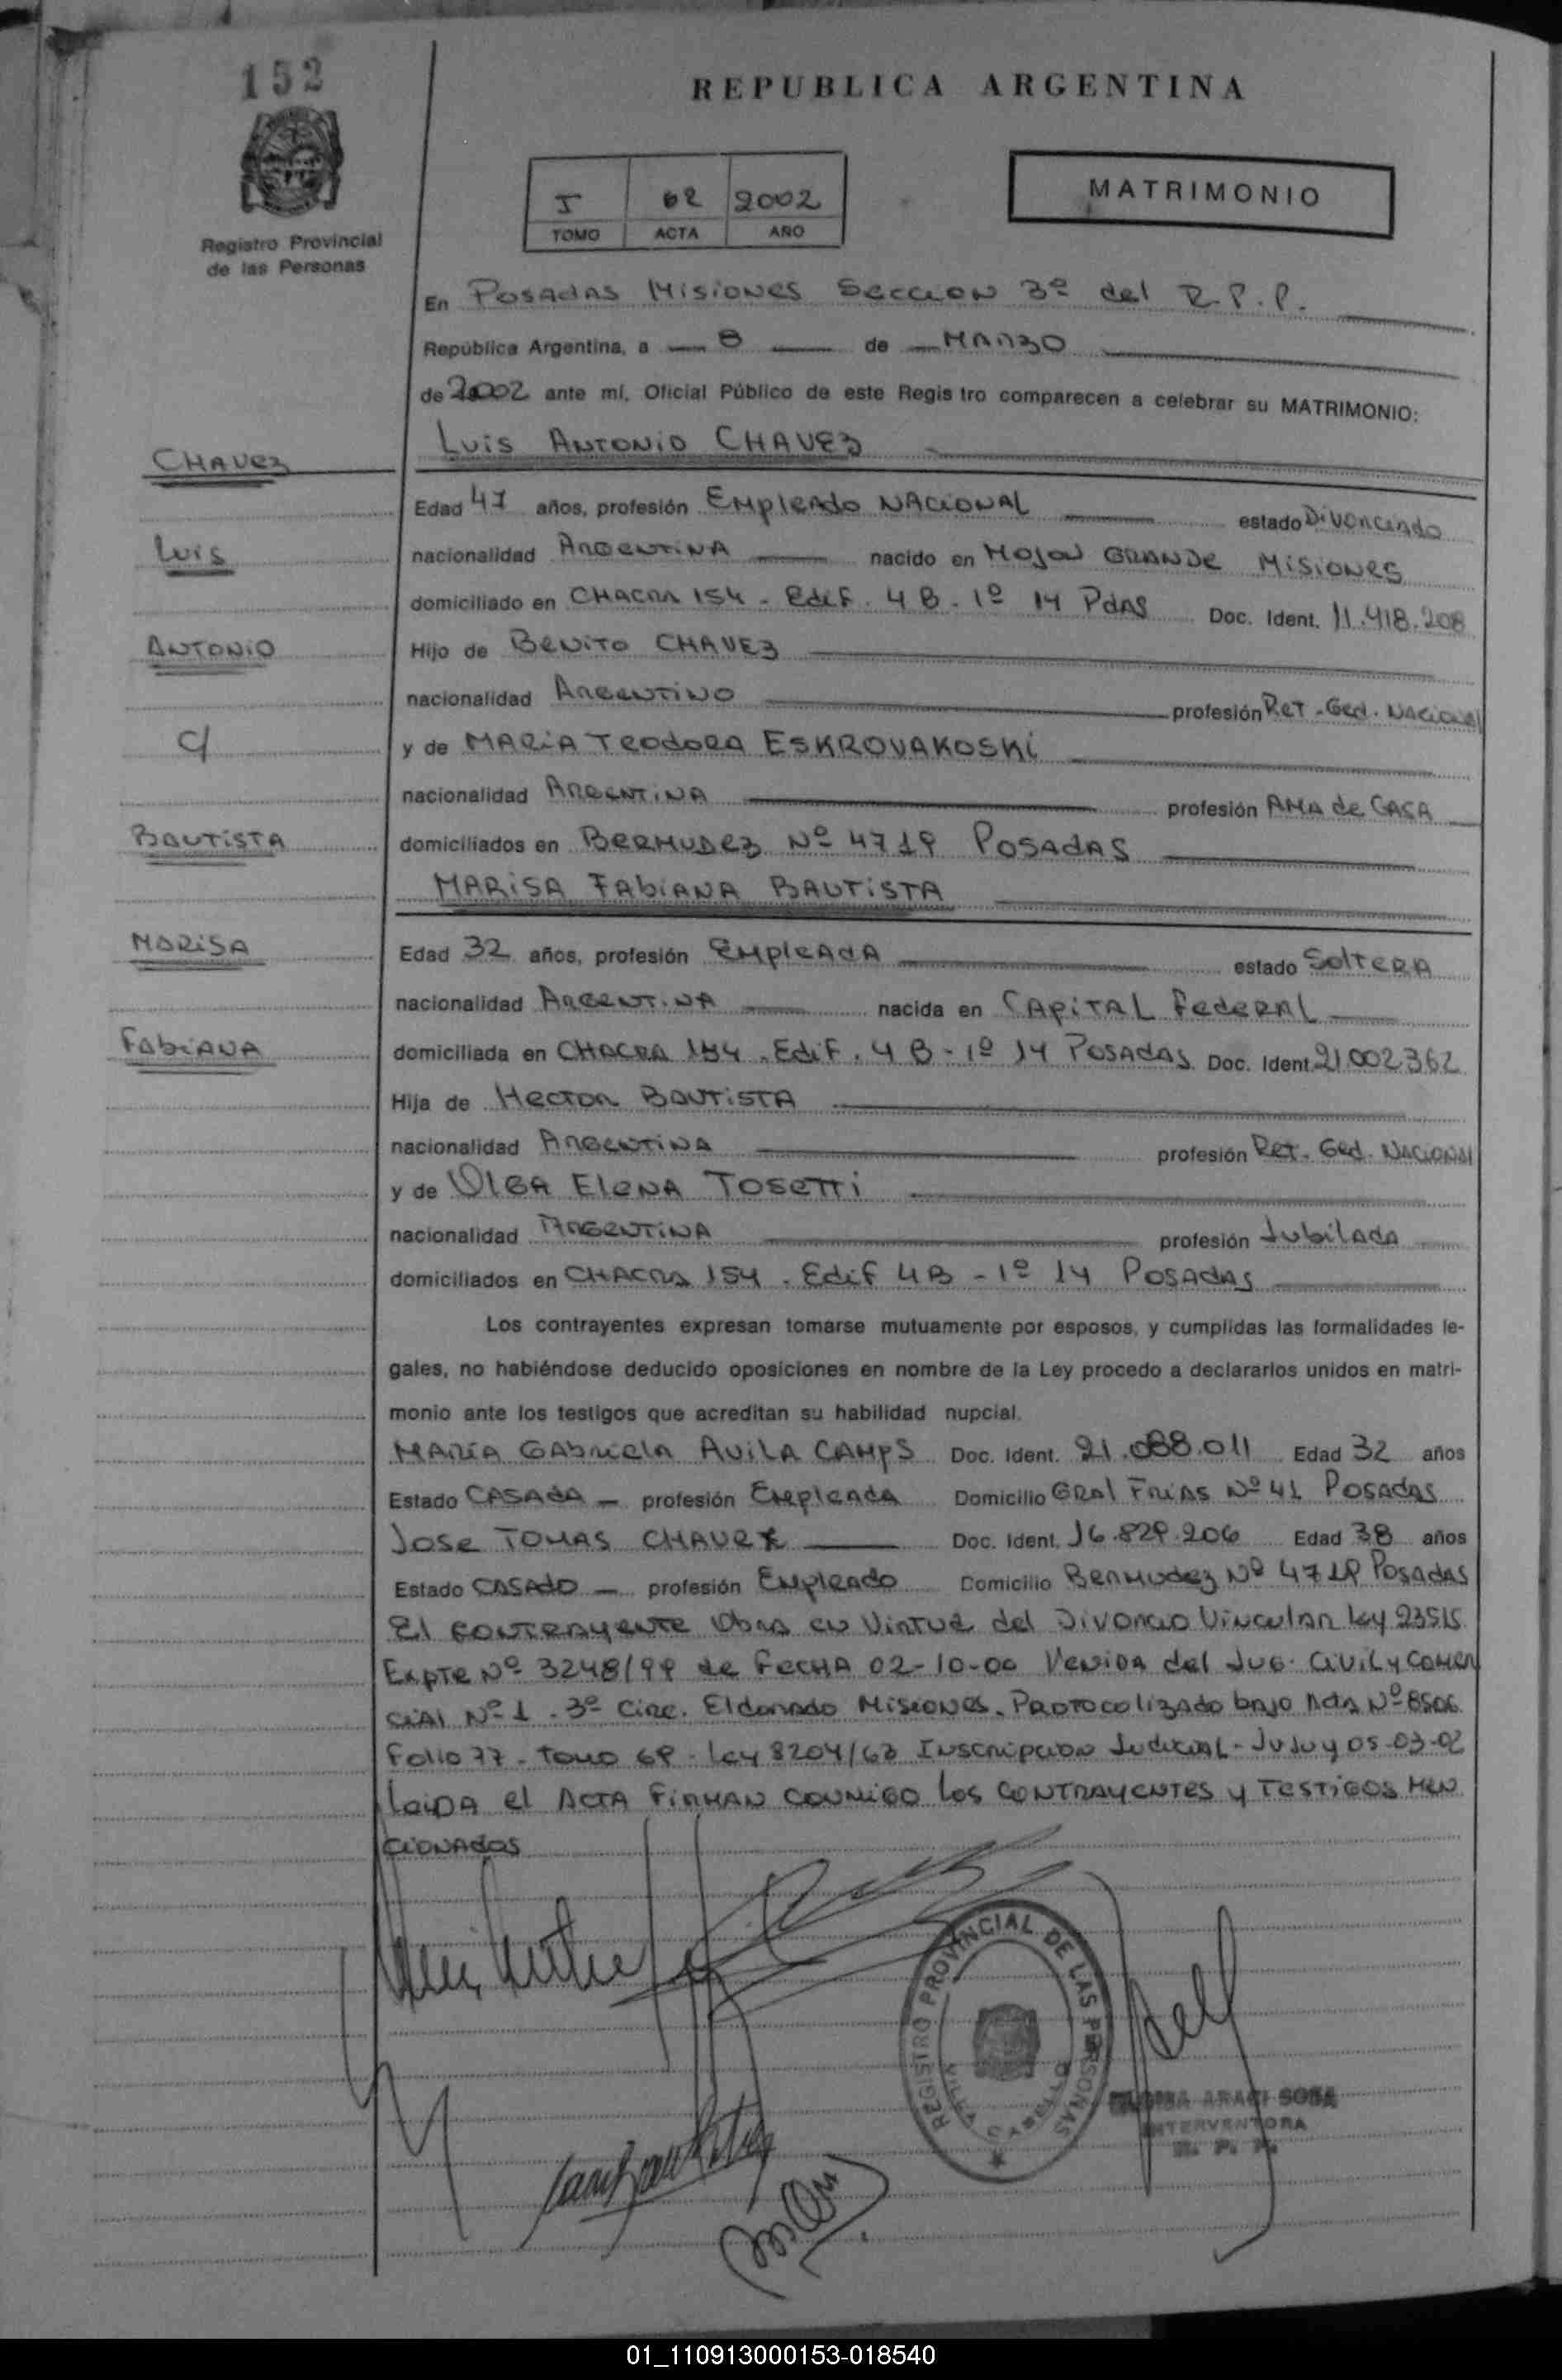 152
REPUBLICA ARGENTINA
MATRIMONIO
I 62 2002
TOMO ACTA AÑO
Registro Provincial
de las Personas
En Posadas Misiones Seccion 3º del R.P.P.
República Argentina, a 8 de Marzo
de 2002 ante mí, Oficial Público de este Regis tro comparecen a celebrar su MATRIMONIO:
Luis Antonio CHAVEZ
CHAVEZ
Edad 47 años, profesión Empleado Nacional estado Divorciado
Luis
nacionalidad Argentina nacido en Mojon Grande Misiones
domiciliado en Chacra 154 - Edif. 4 B - 1º 14 Pdas Doc. Ident. 11.418.208
Antonio
Hijo de Benito CHAVEZ
nacionalidad Argentino profesión Ret. Ged. Nacional
c/
y de Maria Teodora ESKROVAKOSKi
nacionalidad Argentina profesión Ama de Casa
Bautista
domiciliados en Bermudez Nº 4719 Posadas
Marisa Fabiana Bautista
Marisa
Edad 32 años, profesión Empleada estado Soltera
nacionalidad Argentina nacida en Capital Federal
Fabiana
domiciliada en Chacra 154 . Edif. 4 B - 1º 14 Posadas Doc. Ident. 21.002.362
Hija de Hector Bautista
nacionalidad Argentina profesión Ret. Ged. Nacional
y de Olga Elena Tosetti
nacionalidad Argentina profesión Jubilada
domiciliados en Chacra 154 . Edif 4B - 1º 14 Posadas
Los contrayentes expresan tomarse mutuamente por esposos, y cumplidas las formalidades le-
gales, no habiéndose deducido oposiciones en nombre de la Ley procedo a declararlos unidos en matri-
monio ante los testigos que acreditan su habilidad nupcial.
Maria Gabriela Avila Camps Doc. Ident. 21.088.011 Edad 32 años
Estado Casada profesión Empleada Domicilio Gral Frias Nº 41 Posadas
Jose Tomas Chavez Doc. Ident. 16.829.206 Edad 38 años
Estado Casado profesión Empleado Domicilio Bermudez Nº 4719 Posadas
El contrayente obra en virtud del Divorcio Vincular ley 23515
Expte Nº 3248/99 de fecha 02-10-00 Venida del Jug. Civil y Comer
cial Nº 1 . 3º Circ. Eldorado Misiones. Protocolizado bajo Acta Nº 8506
Folio 77 - Tomo 69 - Ley 8204/63 Inscripcion Judicial - Jujuy 05-03-02
Leida el Acta firman conmigo los contrayentes y testigos men
cionados
REGISTRO PROVINCIAL DE LAS PERSONAS
VILLA CABELLO
ARACI SOSA
INTERVENTORA
R. P. P.
01_110913000153-018540